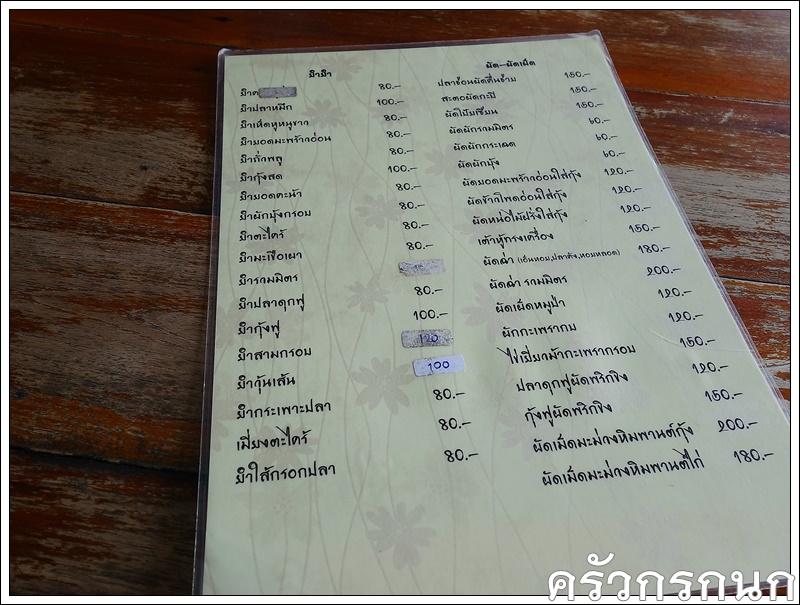 ยำยำ
ยำค 80.-
ยำปลาหมึก 100.-
ยำเห็ดหูหนูขาว 80.-
ยำยอดมะพร้าวอ่อน 80.-
ยำถั่วพลู 80.-
ยำกุ้งสด 100.-
ยำยอดคะน้า 80.-
ยำผักบุ้งกรอบ 80.-
ยำตะไคร้ 80.-
ยำมะเขือเผา 80.-
ยำรวมมิตร
ยำปลาดุกฟู 80.-
ยำกุ้งฟู 100.-
ยำสามกรอบ 120
ยำวุ้นเส้น 100
ยำกระเพาะปลา 80.-
เมี่ยงตะไคร้ 80.-
ยำไส้กรอกปลา 80.-
ผัด-ผัดเผ็ด
ปลาช่อนผัดคื่นช่าย 150.-
สะตอผัดกะปิ 150.-
ผัดโป๊ยเซียน 150.-
ผัดผักรวมมิตร 60.-
ผัดผักกระเฉด 60.-
ผัดผักบุ้ง 60.-
ผัดยอดมะพร้าวอ่อนใส่กุ้ง 120.-
ผัดข้าวโพดอ่อนใส่กุ้ง 120.-
ผัดหน่อไม้ฝรั่งใส่กุ้ง 120.-
เต้าหู้ทรงเครื่อง 150.-
ผัดฉ่า (เอ็นหอย,ปลาคัง,หอยหลอด) 180.-
ผัดฉ่า รวมมิตร 200.-
ผัดเผ็ดหมูป่า 120.-
ผักกะเพรากบ 120.-
ไข่เยี่ยวม้ากะเพรากรอบ 150.-
ปลาดุกฟูผัดพริกขิง 120.-
กุ้งฟูผัดพริกขิง 150.-
ผัดเม็ดมะม่วงหิมพานต์กุ้ง 200.-
ผัดเม็ดมะม่วงหิมพานต์ไก่ 180.-
ครัวกรกนก